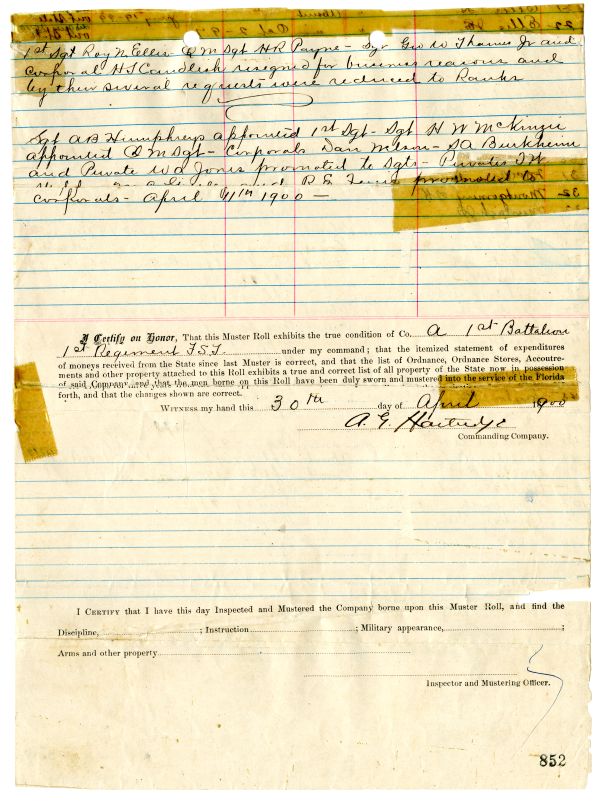 1st Sgt Roy N Ellis - Q M Sgt H R Payne - Sgt Geo W Thames Jr and
Corporal H T Candlish resigned for business reasons and
by their several requests were reduced to Ranks
Sgt A B Humphreys appointed 1st Sgt - Sgt H W McKinzie
appointed Q M Sgt - Corporals Dan - S A Burkheim
and Private W A Jones promoted to Sgts - Privates
promoted to
Corporals - April 11th 1900 -
I Certify on Honor, That this Muster Roll exhibits the true condition of Co. A 1st Battalion
1st Regiment F S T under my command; that the itemized statement of expenditures
of moneys received from the State since last Muster is correct, and that the list of Ordnance, Ordnance Stores, Accoutre-
ments and other property attached to this Roll exhibits a true and correct list of all property of the State now in possession
of said Company and that the men borne on this Roll have been duly sworn and mustered into the service of the Florida
forth, and that the changes shown are correct.
WITNESS my hand this 30th day of April 1900
A. G. Hartridge
Commanding Company.
I CERTIFY that I have this day Inspected and Mustered the Company borne upon this Muster Roll, and find the
Discipline, ; Instruction ; Military appearance, ;
Arms and other property
Inspector and Mustering Officer.
852